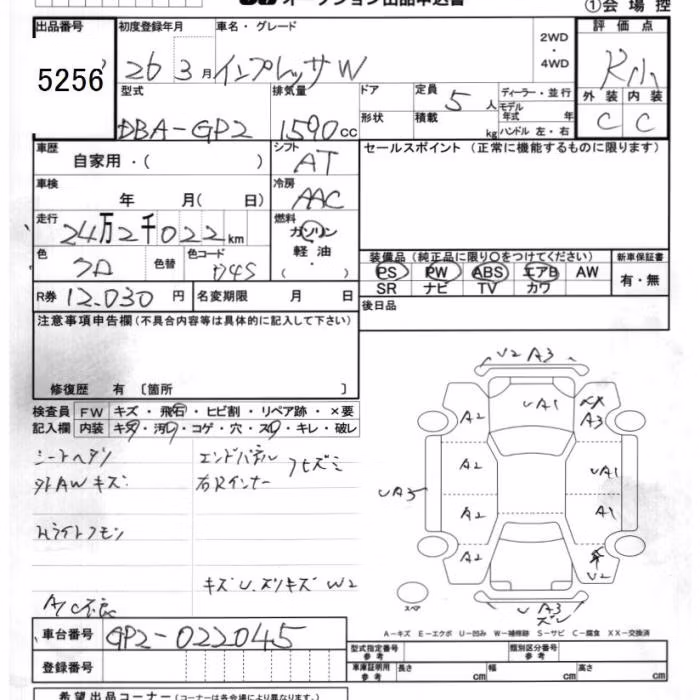 オークション出品申込書
①会場控
出品番号 初度登録年月 車名・グレード 2WD・4WD 評価点
5256 26 3月 インプレッサW
外装 内装
C C
型式 排気量 ドア 定員 ディーラー・並行
DBA-GP2 1590cc 5人 モデル年式 年
形状 積載 kg ハンドル 左・右
車歴 シフト セールスポイント (正常に機能するものに限ります)
自家用・( ) AT
車検 冷房
年 月( 日) AAC
走行 燃料
24万2千022km ガソリン
軽油
・( )
色 色替 色コード D4S
装備品 (純正品に限り○をつけてください) 新車保証書
PS PW ABS エアB AW 有・無
SR ナビ TV カワ
R券 12.030円 名変期限 月 日
後日品
注意事項申告欄 (不具合内容等は具体的に記入して下さい)
修復歴 有 〔箇所 〕
検査員 FW キズ・飛石・ヒビ割・リペア跡・×要
記入欄 内装 キズ・汚れ・コゲ・穴・スレ・キレ・破レ
シートヘタリ エンドパネル
外AWキズ 右Rインナー
Hライトクモリ
キズU.ズリキズW2
A/C不良
V2 A3
UA1
A2 XX A3
A2 UA1
UA3
A2 A1
A2 U2
UA3
スペア
A-キズ E-エクボ U-凹み W-補修跡 S-サビ C-腐食 XX-交換済
車台番号 GP2-022045
型式指定番号 参考 類別区分番号 参考
登録番号 車庫証明用 参考 長さ cm 幅 cm 高さ cm
希望出品コーナー (コーナーは各会場により異なります。)